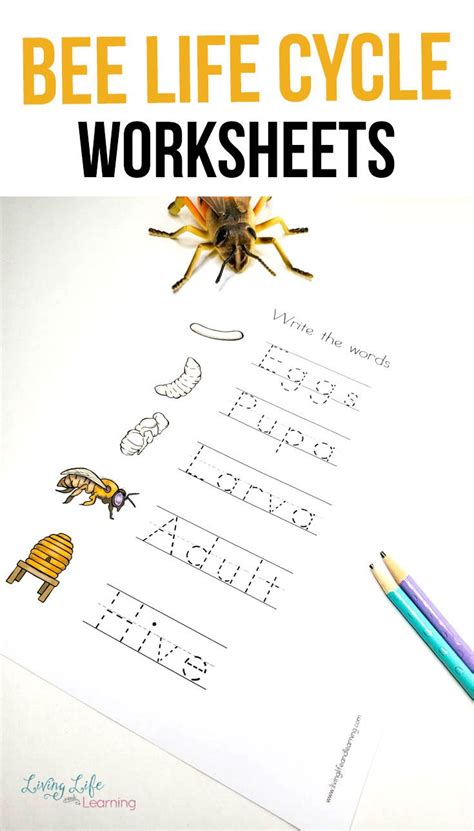 BEE LIFE CYCLE
WORKSHEETS
Write the words
Eggs
Pupa
Larva
Adult
Hive
www.livinglifeandlearning.com
Living Life
and Learning